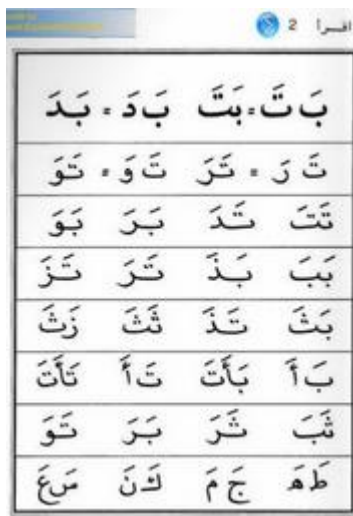 اقرأ 2
بَ تَ = بَتَ بَ دَ = بَدَ
تَ رَ = تَرَ تَ وَ = تَوَ
تَتَ تَدَ بَرَ بَوَ
بَبَ بَذَ تَرَ تَزَ
بَثَ تَذَ ثَثَ زَثَ
بَ أَ بَأَتَ تَ أَ تَأَتَ
ثَبَ ثَرَ بَرَ تَوَ
طَ هَ جَ مَ كَ نَ سَ عَ